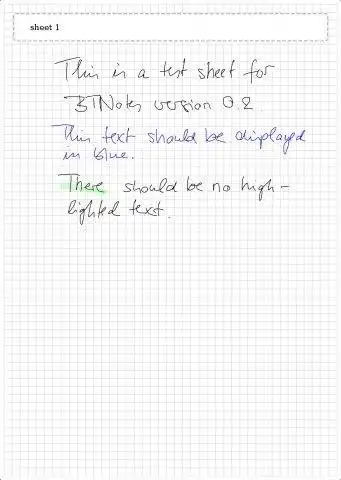 sheet 1
This is a test sheet for
BTNotes version 0.2
This text should be displayed
in blue.
There should be no high-
lighted text.